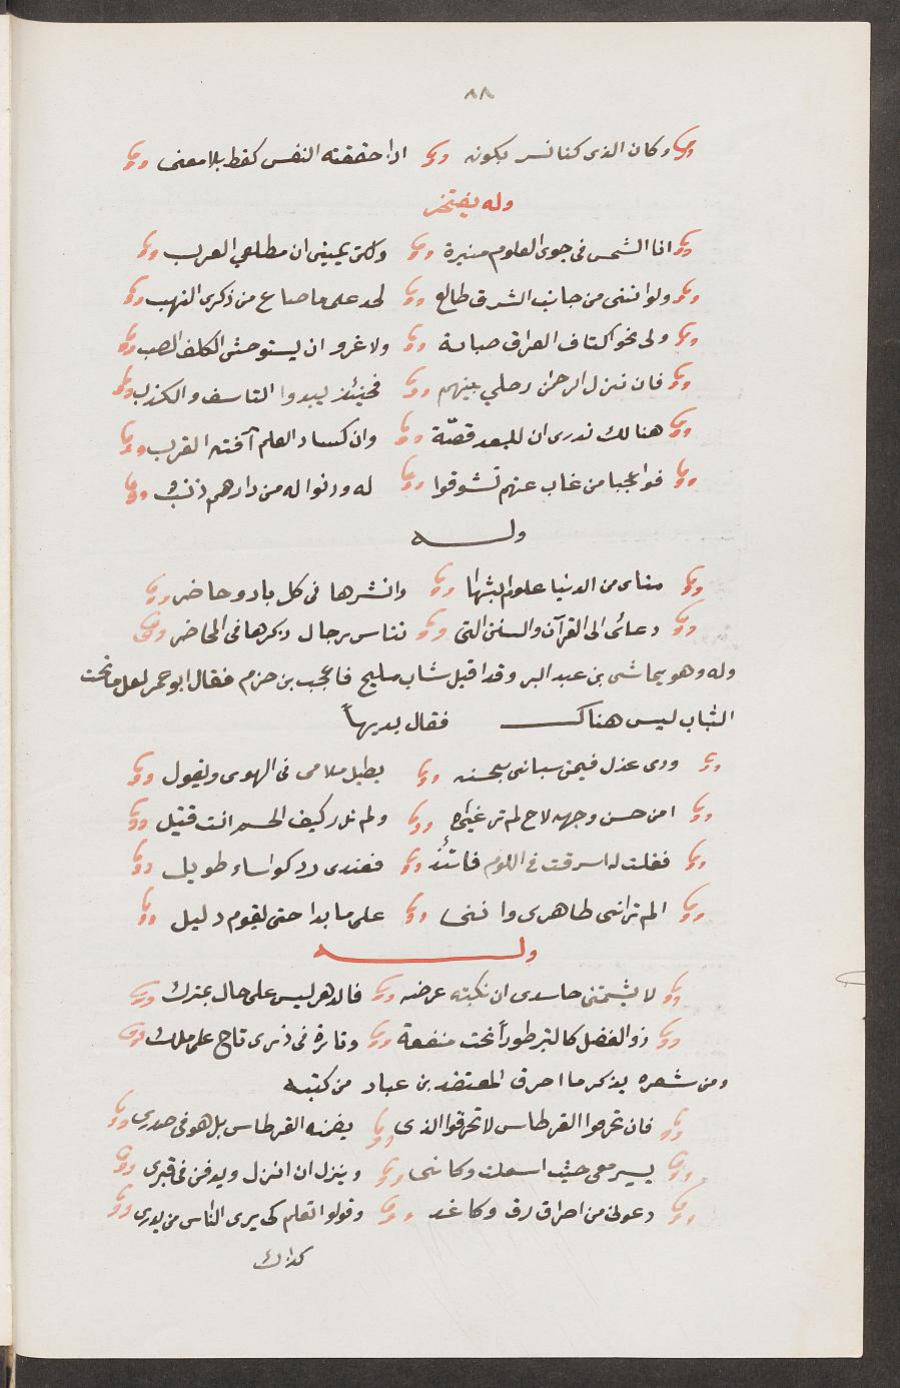 ٨٨
وكان الذى كنا نسر بكونه اذا حققته النفس كفظ بلا معنى
وله يفتخر
انا الشمس فى جوى العلوم منيرة ولكن يميننى ان مطلعي العرب
ولو اننى من جانب الشرق طالع لجد على ما ضاع من ذكرى النهب
ولى نحو اكتاف العراق صبابة ولا غرو ان يستوحش الكلف الصب
فان ننزل الرحمن رحلي بينهم فحينئذ يبدوا التاسف والكرب
هنالك ندرى ان للبعد قصّة وان كساد العلم آفته القرب
فواعجبا من غاب عنهم تشوقوا له ودنوا له من دارهم ذنب
وله
مناى من الدنيا علوم ابثها وانشرها فى كل باد وحاضر
دعائى الى القرآن والسنن التى تناس رجال ذكرها فى المحاضر
وله وهو يماشى بن عبد البر وقد اقبل شاب مليح فاعجب بن حزم فقال ابو عمر لعل ما تحت
الثياب ليس هناك فقال بديهاً
وذى عذل فيمن سبانى بحسنه يطيل ملامى فى الهوى ويقول
امن حسن وجه لاح لم تر غيره ولم تدر كيف الجسم انت قتيل
فقلت له اسرفت فى اللوم فاتئذ فعندى رد كواساء طويل
الم تر انى ظاهرى واننى على ما بدا حتى يقوم دليل
وله
لا يشمتنى حاسدى ان نكبته عرضه فالدهر ليس على حال بمترك
ذو الفضل كالتبر طوراً تحت منفعة وتارة فى ذرى تاج على ملك
ومن شعره يذكر ما احرق المعتضد بن عباد من كتبه
فان تحرقوا القرطاس لا تحرقوا الذى يضمنه القرطاس بل هو فى صدرى
يسير معى حيث استقلت ركائبى وينزل ان انزل ويدفن فى قبرى
دعونى من احراق رق وكاغد وقولوا تعلم كى يرى الناس من يدرى
كذاك